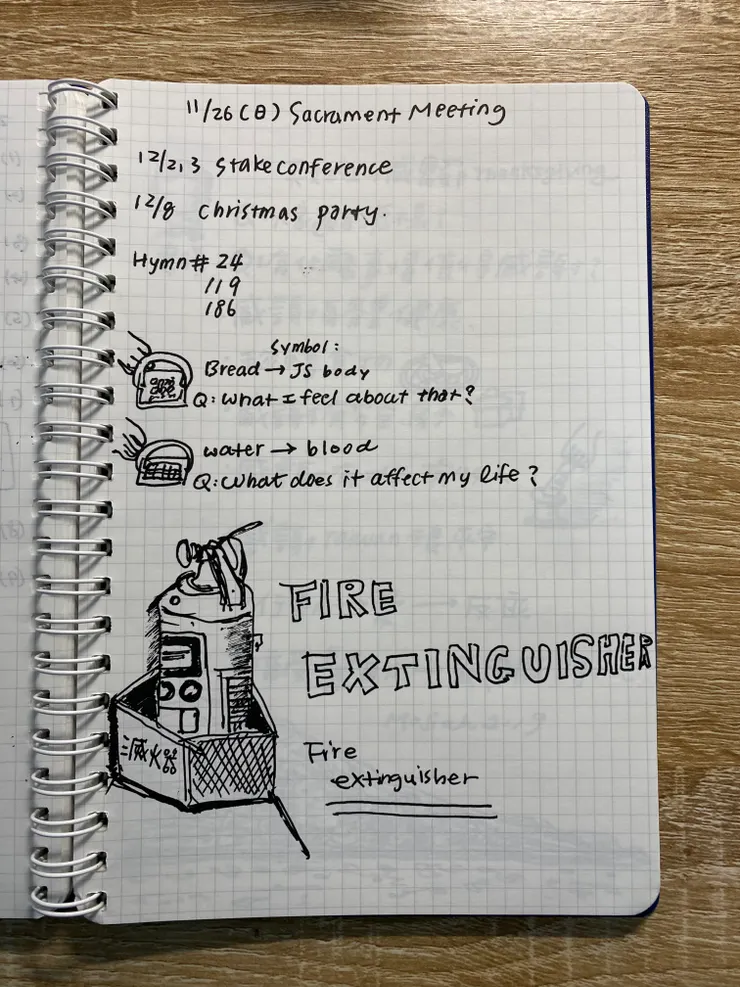 11/26(日) Sacrament Meeting
12/2,3 Stake conference
12/8 Christmas party.
Hymn# 24
119
186
Symbol:
Bread → JS body
Q: What I feel about that?
water → blood
Q: What does it affect my life?
FIRE
EXTINGUISHER
滅火器
Fire
extinguisher